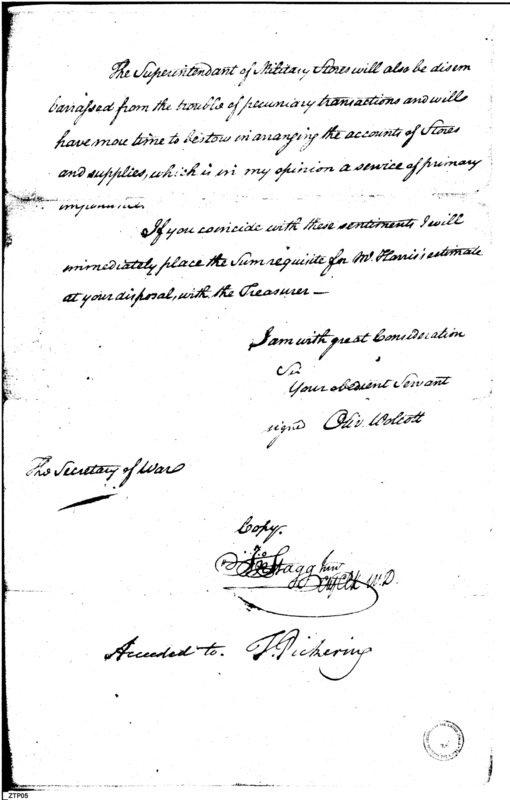 The Superintendant of Military Stores will also be disem
barrassed from the trouble of pecuniary transactions and will
have more time to bestow in arranging the accounts of Stores
and supplies, which is in my opinion a service of primary
importance.
If you coincide with these sentiments I will
immediately place the Sum requisite for Mr. Harris's estimate
at your disposal, with the Treasurer —
I am with great Consideration
Sir
Your obedient Servant
signed Oliv. Wolcott
The Secretary of War
Copy.
Jno Stagg Junr
Chf Clk W.D.
Acceded to. T. Pickering
ZTP05